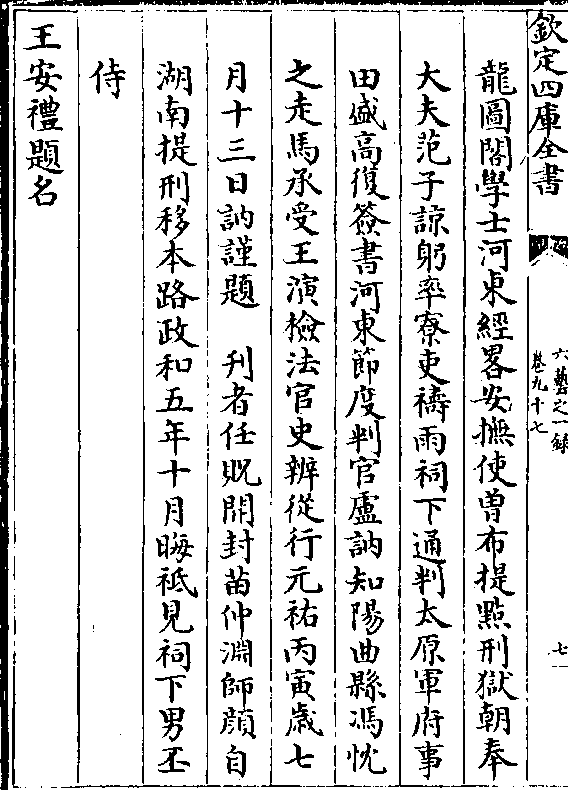 欽定四庫全書
六藝之一録
卷九十七
七
龍圖閣學士河東經畧安撫使曽布提㸃刑獄朝奉
大夫范子諒躬率寮吏禱雨祠下通判太原軍府事
田盛高復簽書河東節度判官盧訥知陽曲縣馮忱
之走馬承受王演檢法官史辨從行元祐丙寅嵗七
月十三日訥謹題　刋者任貺開封苗仲淵師顔自
湖南提刑移本路政和五年十月晦祗見祠下男丕
侍
王安禮題名